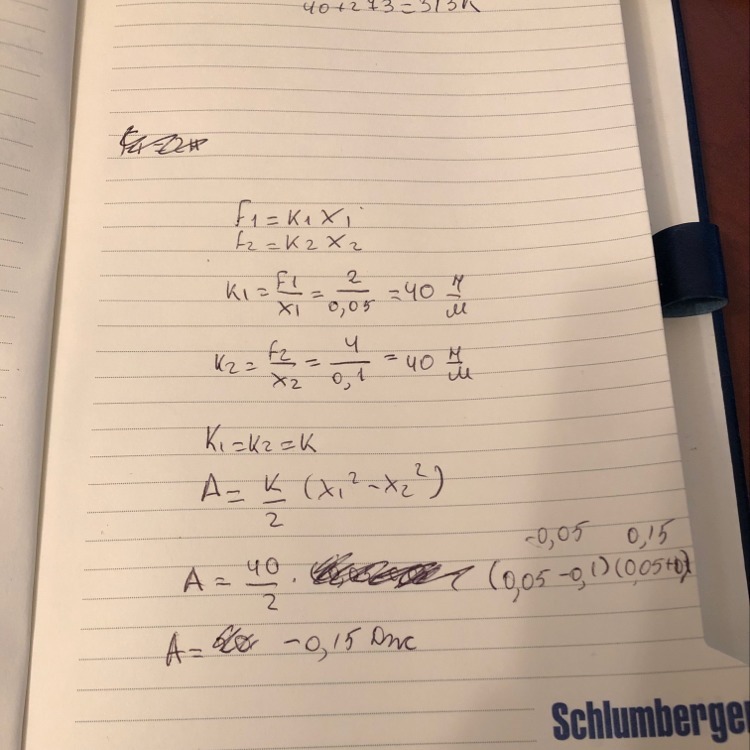 40+273=313K
F1=K1X1
F2=K2X2
K1=F1/X1=2/0,05=40 Н/м
K2=F2/X2=4/0,1=40 Н/м
K1=K2=K
A=K/2 (X1²-X2²)
-0,05 0,15
A=40/2· (0,05-0,1)(0,05+0,1
A= -0,15 Дж
Schlumberger